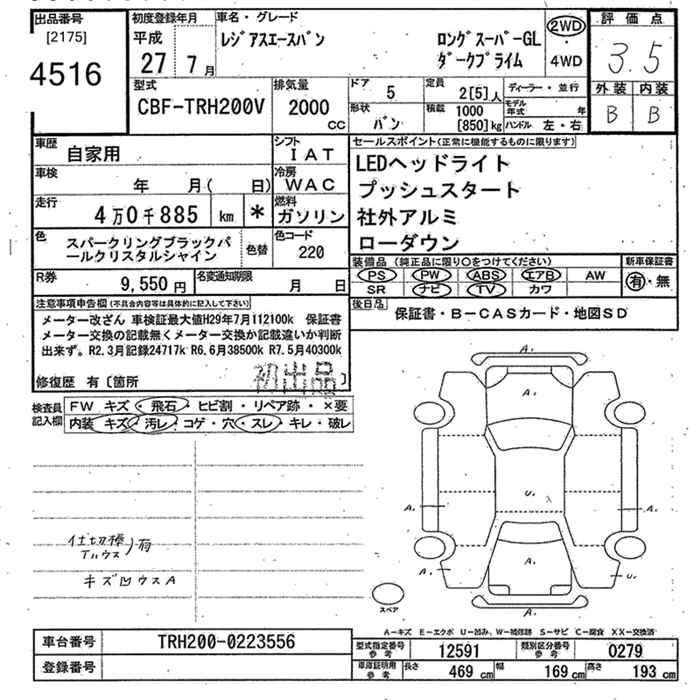 出品番号
[2175]
4516
初度登録年月
平成
27 7月
車名・グレード
レジアスエースバン
ロングスーパーGL
ダークプライム
2WD
・
4WD
評価点
3.5
外装 内装
B B
型式
CBF-TRH200V
排気量
2000
CC
ドア
5
定員
2[5]人
形状
バン
積載
1000
[850]kg
ディーラー・並行
モデル年式 年
ハンドル 左・右
車歴
自家用
シフト
IAT
車検
年 月( 日)
冷房
WAC
走行
4万0千885 km *
燃料
ガソリン
色
スパークリングブラックパ
ールクリスタルシャイン
色替
色コード
220
R券
9,550円
名変通知期限
月 日
セールスポイント(正常に機能するものに限ります)
LEDヘッドライト
プッシュスタート
社外アルミ
ローダウン
装備品(純正品に限り○をつけてください)
PS PW ABS エアB AW
SR ナビ TV カワ
新車保証書
有・無
後日品
保証書・B-CASカード・地図SD
注意事項申告欄(不具合内容等は具体的に記入して下さい)
メーター改ざん 車検証最大値H29年7月112100k 保証書
メーター交換の記載無くメーター交換か記載違いか判断
出来ず。R2.3月記録24717k R6.6月38500k R7.5月40300k
修復歴 有〔箇所 〕
初出品
検査員
記入欄
FW キズ・飛石・ヒビ割・リペア跡・×要
内装 キズ・汚レ・コゲ・穴・スレ・キレ・破レ
仕切棒
有
キズ凹ウスA
A.
A.
A.
U.
A.
A.
U.
A.
スペア
A-キズ E-エクボ U-凹み W-補修跡 S-サビ C-腐食 XX-交換済
車台番号
TRH200-0223556
登録番号
型式指定番号
参考
12591
類別区分番号
参考
0279
車庫証明用
参考
長さ
469 cm
幅
169 cm
高さ
193 cm